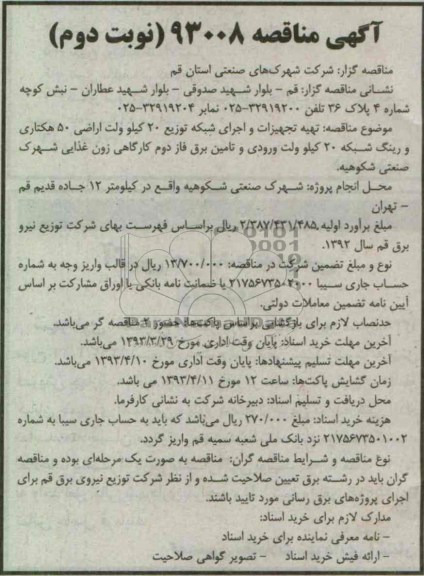 آگهی مناقصه ۹۳۰۰۸ (نوبت دوم)
مناقصه گزار: شرکت شهرک‌های صنعتی استان قم
نشانی مناقصه گزار: قم - بلوار شهید صدوقی - بلوار شهید عطاران - نبش کوچه
شماره ۴ پلاک ۳۶ تلفن ۳۲۹۱۹۲۰۰-۰۲۵ نمابر ۳۲۹۱۹۲۰۴-۰۲۵
موضوع مناقصه: تهیه تجهیزات و اجرای شبکه توزیع ۲۰ کیلو ولت اراضی ۵۰ هکتاری
و رینگ شبکه ۲۰ کیلو ولت ورودی و تامین برق فاز دوم کارگاهی زون غذایی شهرک
صنعتی شکوهیه.
محل انجام پروژه: شهرک صنعتی شکوهیه واقع در کیلومتر ۱۲ جاده قدیم قم
- تهران
مبلغ برآورد اولیه ۲/۳۸۷/۴۳۱/۴۸۵ ریال براساس فهرست بهای شرکت توزیع نیرو
برق قم سال ۱۳۹۲.
نوع و مبلغ تضمین شرکت در مناقصه: ۱۳/۷۰۰/۰۰۰ ریال در قالب واریز وجه به شماره
حساب جاری سیبا یا ضمانت نامه بانکی یا اوراق مشارکت بر اساس
آیین نامه تضمین معاملات دولتی.
حدنصاب لازم برای بازگشایی براساس پاکت‌ها، حضور ۲ مناقصه گر می‌باشد.
آخرین مهلت خرید اسناد: پایان وقت اداری مورخ ۱۳۹۳/۳/۲۹ می‌باشد.
آخرین مهلت تسلیم پیشنهادها: پایان وقت اداری مورخ ۱۳۹۳/۴/۱۰ می‌باشد.
زمان گشایش پاکت‌ها: ساعت ۱۲ مورخ ۱۳۹۳/۴/۱۱ می باشد.
محل دریافت و تسلیم اسناد: دبیرخانه شرکت به نشانی کارفرما.
هزینه خرید اسناد: مبلغ ۲۷۰/۰۰۰ ریال می‌باشد که باید به حساب جاری سیبا به شماره
۲۱۷۵۶۷۳۵۰۱۰۰۲ نزد بانک ملی شعبه سمیه قم واریز گردد.
نوع مناقصه و شرایط مناقصه گران: مناقصه به صورت یک مرحله‌ای بوده و مناقصه
گران باید در رشته برق تعیین صلاحیت شده و از نظر شرکت توزیع نیروی برق قم برای
اجرای پروژه‌های برق رسانی مورد تایید باشند.
مدارک لازم برای خرید اسناد:
- نامه معرفی نماینده برای خرید اسناد
- ارائه فیش خرید اسناد - تصویر گواهی صلاحیت